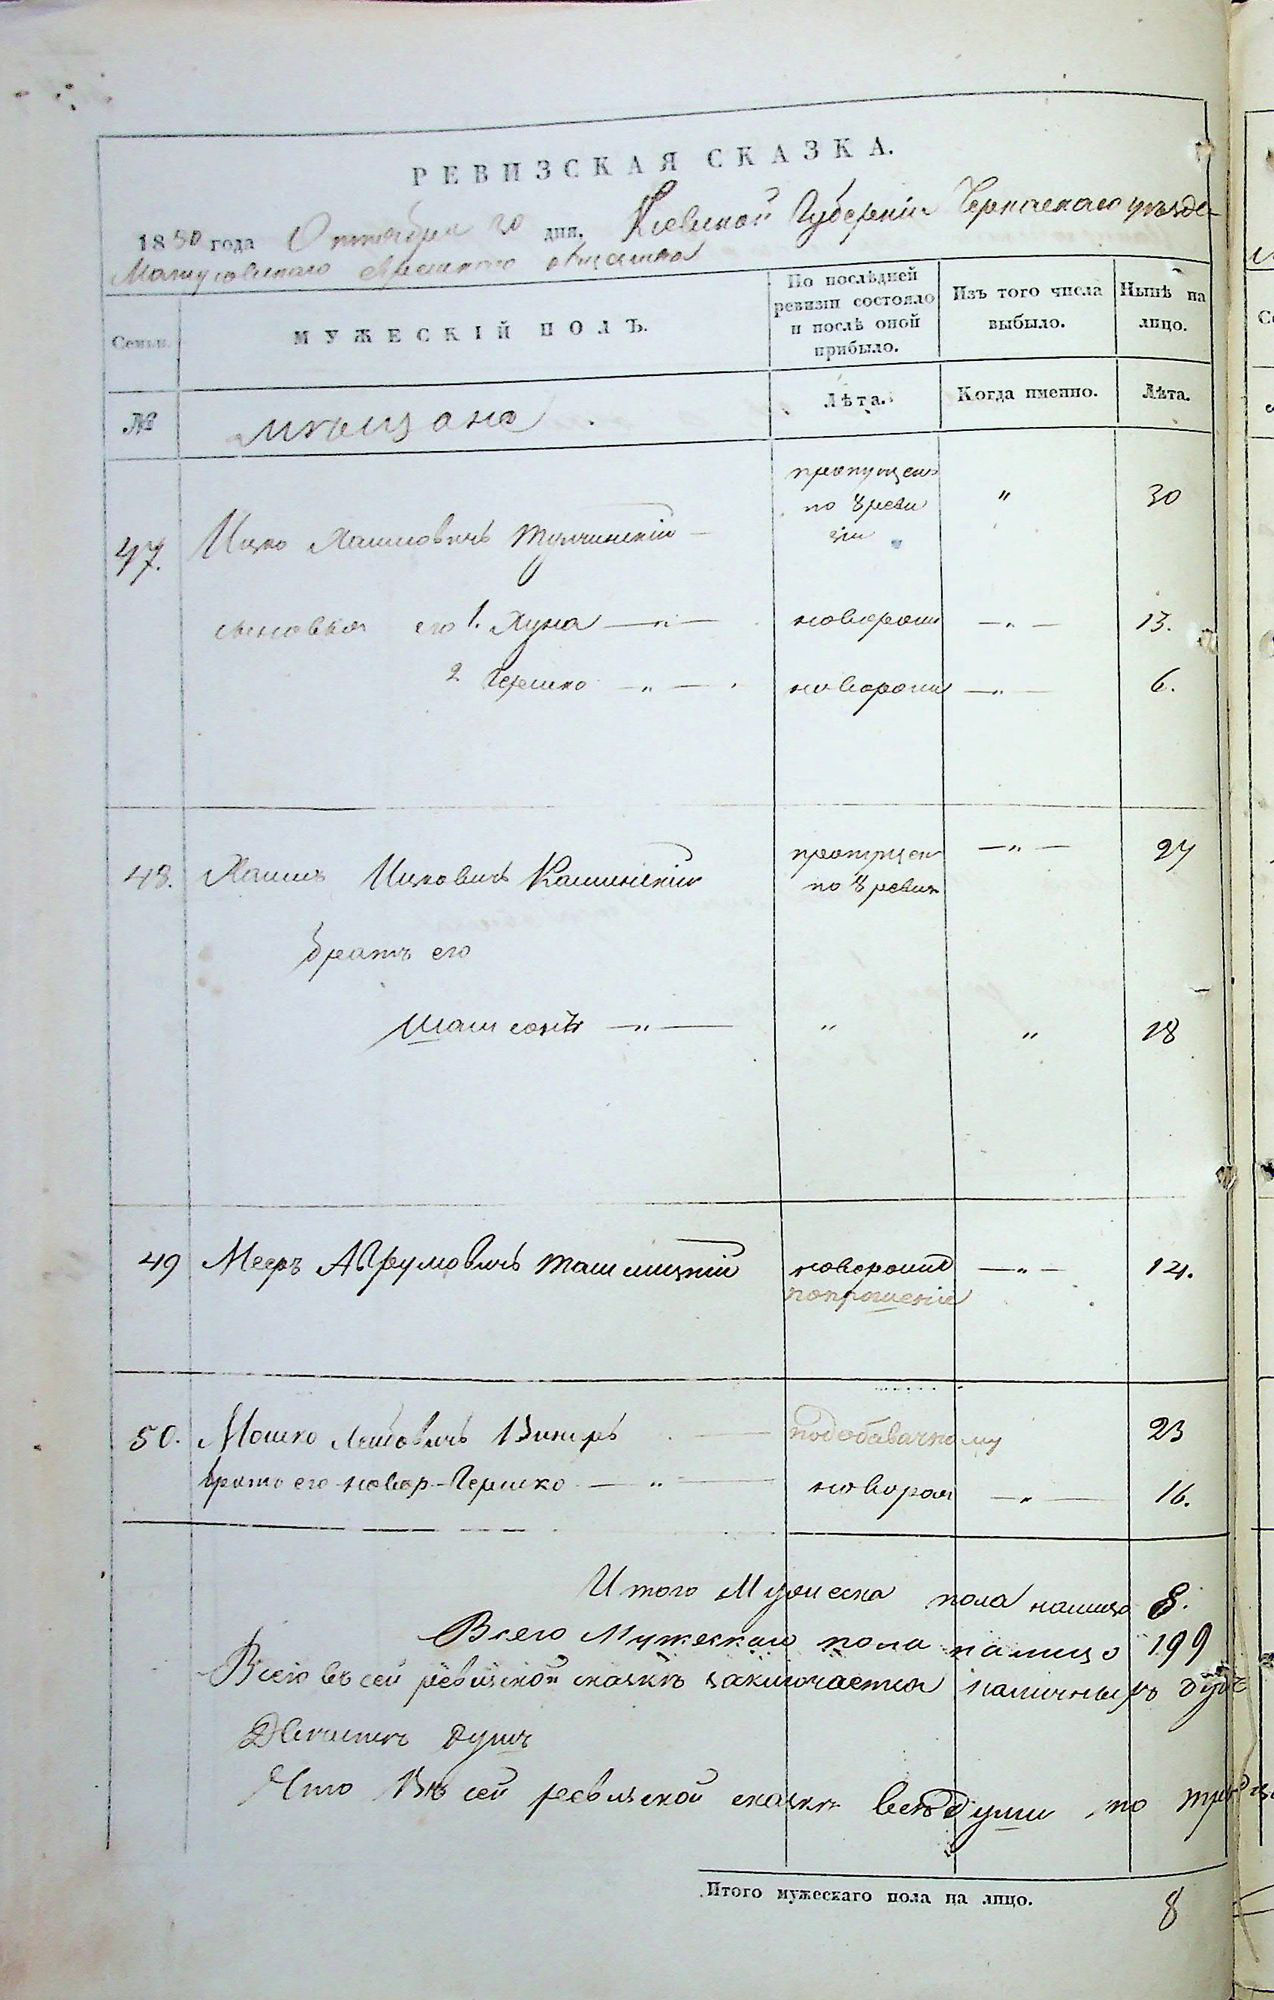 РЕВИЗСКАЯ СКАЗКА.
1850 года Октября 20 дня. Киевской Губернии Черкаскаго уезда
Матусовскаго Еврейского общества
Семьи. МУЖЕСКІЙ ПОЛЪ. По послѣдней ревизіи состояло и послѣ оной прибыло. Изъ того числа выбыло. Нынѣ на лицо.
№ мѣщане Лѣта. Когда именно. Лѣта.
47. Ицко Хаимовичъ Тулчинскій пропущен по 8 ревизіи " 30
сыновья его 1. Хуна — " — новорож — " — 13.
2 Гершко — " — новорож — " — 6.
48. Хаимъ Ицковичъ Каминскій пропущен по 8 ревиз — " — 27
братъ его
Шамсонъ — " — " " 18
49 Мееръ Аврумовичъ Ташлицкій новорожд — " — 14.
50. Мошко Лейбовичъ Винеръ — подобавочному 23
братъ его новор-Гершко — " — новорож — " — 16.
Итого Мужеска пола налицо 8.
Всего Мужескаго пола налицо 199
Всего въ сей ревизской сказкѣ заключается наличныхъ
душъ
Что Въ сей ревизской сказки всѣ души по
Итого мужескаго пола на лицо. 8